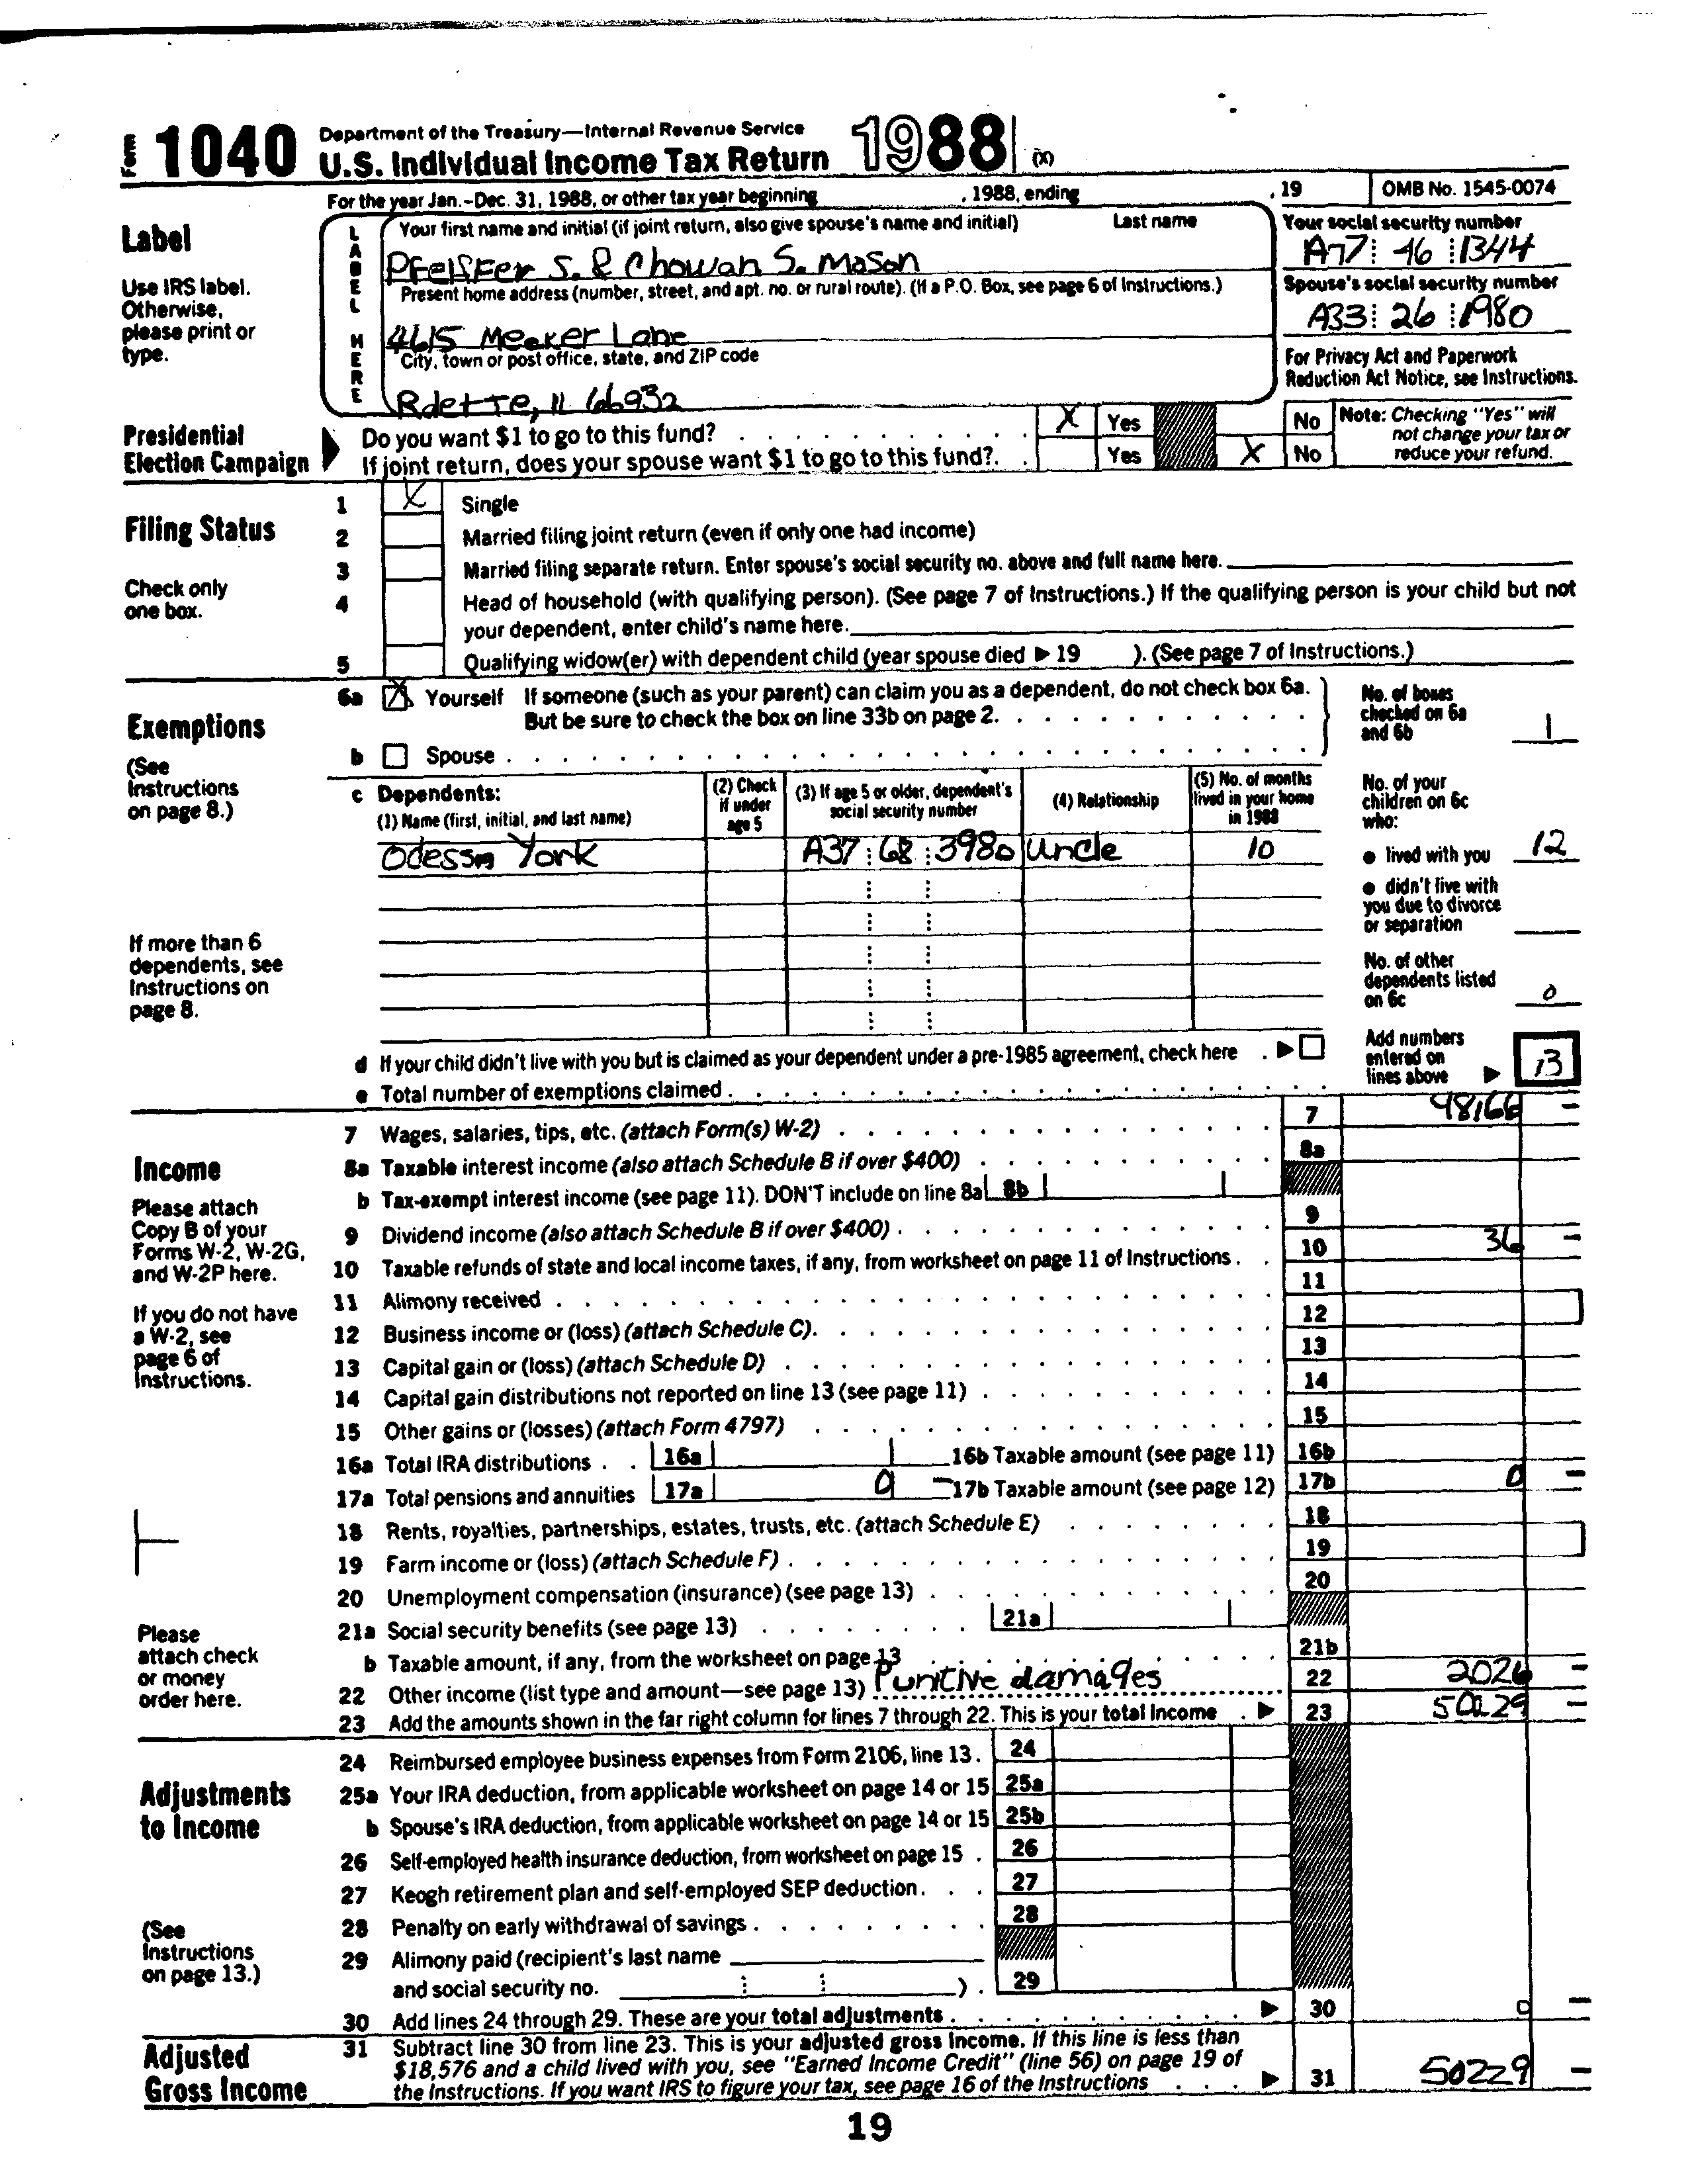 Form 1040 Department of the Treasury—Internal Revenue Service
U.S. Individual Income Tax Return 1988 (X)
For the year Jan.-Dec. 31, 1988, or other tax year beginning , 1988, ending , 19 OMB No. 1545-0074
Label
Use IRS label. Otherwise, please print or type.
LABEL HERE
Your first name and initial (if joint return, also give spouse's name and initial) Last name
Pfeiffer S. & Chowan S. Mason
Present home address (number, street, and apt. no. or rural route). (If a P.O. Box, see page 6 of Instructions.)
4615 Meeker Lane
City, town or post office, state, and ZIP code
IL 66932
Your social security number
A77 46 1344
Spouse's social security number
A33 26 1980
For Privacy Act and Paperwork Reduction Act Notice, see Instructions.
Presidential Election Campaign
Do you want $1 to go to this fund? X Yes No
If joint return, does your spouse want $1 to go to this fund? Yes X No
Note: Checking "Yes" will not change your tax or reduce your refund.
Filing Status
Check only one box.
1 X Single
2 Married filing joint return (even if only one had income)
3 Married filing separate return. Enter spouse's social security no. above and full name here.
4 Head of household (with qualifying person). (See page 7 of Instructions.) If the qualifying person is your child but not
your dependent, enter child's name here.
5 Qualifying widow(er) with dependent child (year spouse died ▶ 19 ). (See page 7 of Instructions.)
Exemptions
(See Instructions on page 8.)
6a X Yourself If someone (such as your parent) can claim you as a dependent, do not check box 6a.
But be sure to check the box on line 33b on page 2.
b Spouse
No. of boxes checked on 6a and 6b 1
c Dependents:
(1) Name (first, initial, and last name)
(2) Check if under age 5
(3) If age 5 or older, dependent's social security number
(4) Relationship
(5) No. of months lived in your home in 1988
Odessa York A37 68 3980 Uncle 10
If more than 6 dependents, see Instructions on page 8.
No. of your children on 6c who:
● lived with you 12
● didn't live with you due to divorce or separation
No. of other dependents listed on 6c 0
d If your child didn't live with you but is claimed as your dependent under a pre-1985 agreement, check here ▶
e Total number of exemptions claimed
Add numbers entered on lines above ▶ 13
Income
Please attach Copy B of your Forms W-2, W-2G, and W-2P here.
If you do not have a W-2, see page 6 of Instructions.
7 Wages, salaries, tips, etc. (attach Form(s) W-2) 7 48166 –
8a Taxable interest income (also attach Schedule B if over $400) 8a
b Tax-exempt interest income (see page 11). DON'T include on line 8a 8b
9 Dividend income (also attach Schedule B if over $400) 9
10 Taxable refunds of state and local income taxes, if any, from worksheet on page 11 of Instructions 10 36 –
11 Alimony received 11
12 Business income or (loss) (attach Schedule C) 12
13 Capital gain or (loss) (attach Schedule D) 13
14 Capital gain distributions not reported on line 13 (see page 11) 14
15 Other gains or (losses) (attach Form 4797) 15
16a Total IRA distributions 16a 16b Taxable amount (see page 11) 16b
17a Total pensions and annuities 17a 0 – 17b Taxable amount (see page 12) 17b 0 –
18 Rents, royalties, partnerships, estates, trusts, etc. (attach Schedule E) 18
19 Farm income or (loss) (attach Schedule F) 19
20 Unemployment compensation (insurance) (see page 13) 20
21a Social security benefits (see page 13) 21a
b Taxable amount, if any, from the worksheet on page 13 21b
22 Other income (list type and amount—see page 13) Punitive damages 22 2026 –
23 Add the amounts shown in the far right column for lines 7 through 22. This is your total income ▶ 23 50229 –
Please attach check or money order here.
Adjustments to Income
(See Instructions on page 13.)
24 Reimbursed employee business expenses from Form 2106, line 13. 24
25a Your IRA deduction, from applicable worksheet on page 14 or 15 25a
b Spouse's IRA deduction, from applicable worksheet on page 14 or 15 25b
26 Self-employed health insurance deduction, from worksheet on page 15 26
27 Keogh retirement plan and self-employed SEP deduction 27
28 Penalty on early withdrawal of savings 28
29 Alimony paid (recipient's last name
and social security no. ) 29
30 Add lines 24 through 29. These are your total adjustments ▶ 30 0 –
Adjusted Gross Income
31 Subtract line 30 from line 23. This is your adjusted gross income. If this line is less than
$18,576 and a child lived with you, see "Earned Income Credit" (line 56) on page 19 of
the Instructions. If you want IRS to figure your tax, see page 16 of the Instructions ▶ 31 50229 –
19